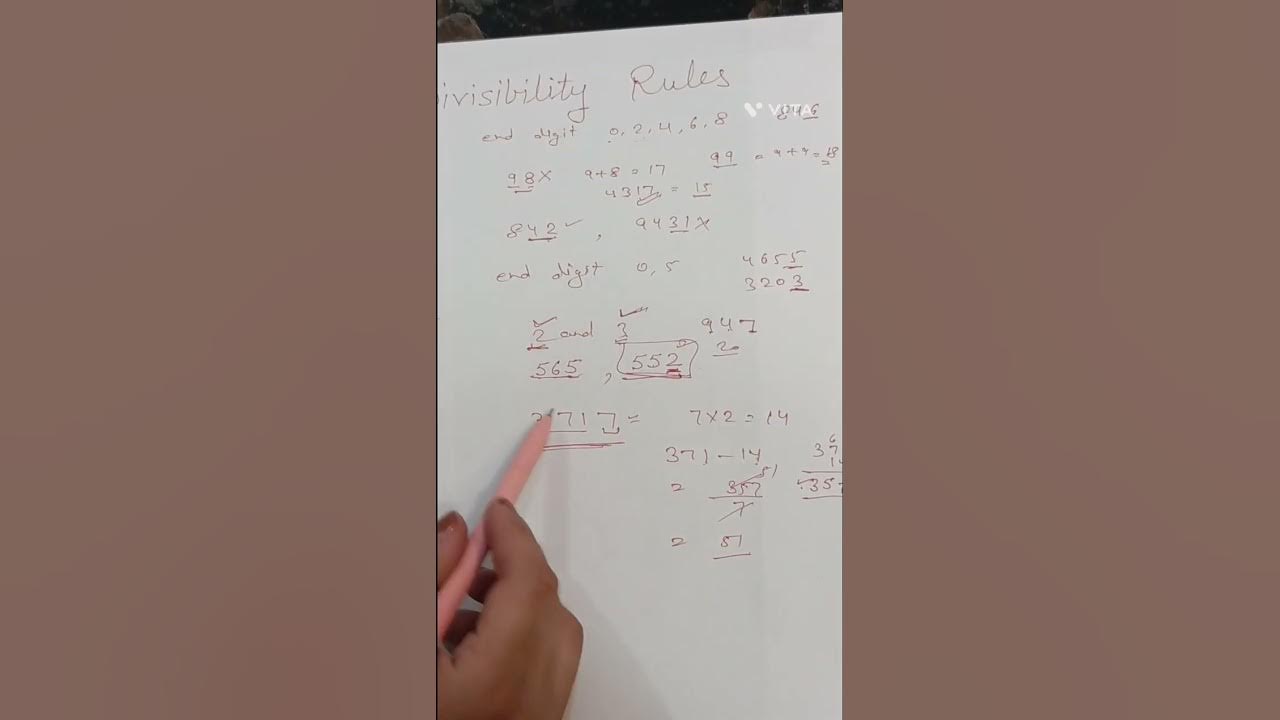 ivisibility Rules
VITA
end digit 0, 2, 4, 6, 8 846
98 X 9+8 = 17 99 = 9+9 = 18
4317 = 15
842 ✓, 9431 X
end digit 0, 5 4655
3203
2 and 3 947
565, 552 20
71 7 = 7×2 = 14
371 - 14
= 357 51
7
= 51